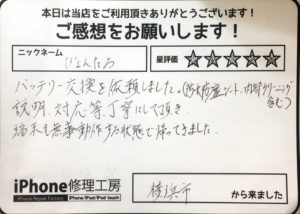 本日は当店をご利用頂きありがとうございます！
ご感想をお願いします！
ニックネーム
じょんたろ
星評価
★★★★★
バッテリー交換を依頼しました。(防水修理シート、内部クリーニング
含む)
説明、対応等、丁寧にして頂き
端末も無事動作する状態で帰ってきました。
iPhone修理工房
iPhone Repair Factory
iPhone/iPad/iPod touch
横浜市
から来ました